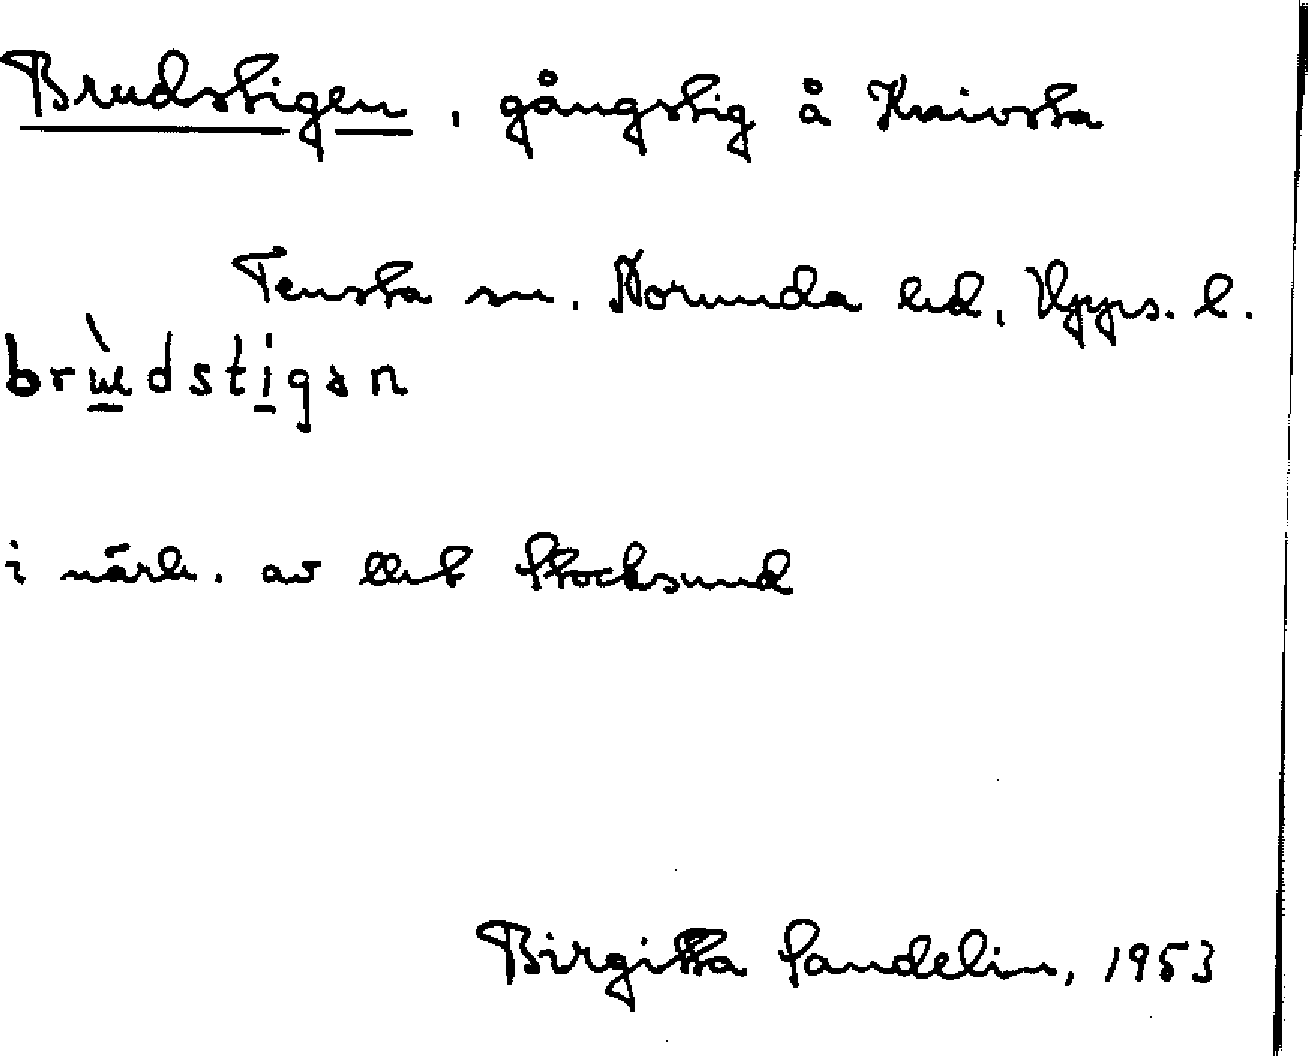 Brudstigen, gångstig å Knivsta
Tensta sn. Norunda hd, Upps. l.
brùdstigən
i närh. av Stocksund
Birgitta Sandelin, 1953